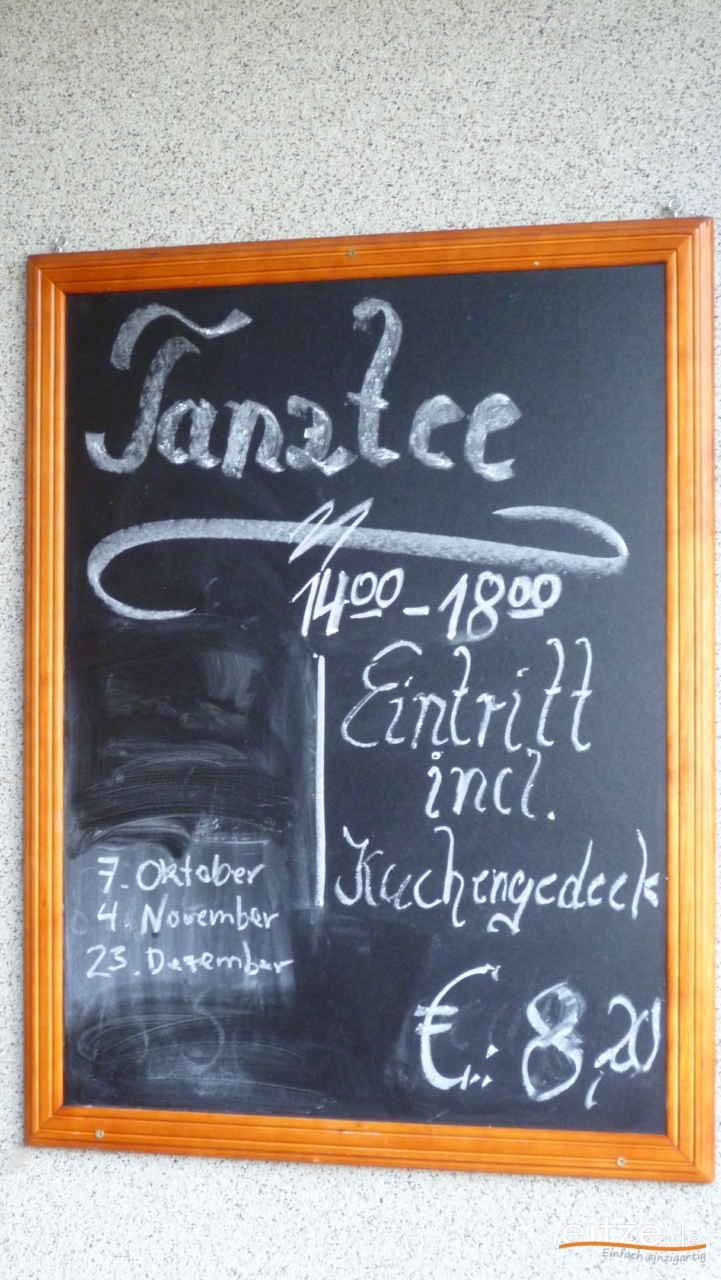 Tanztee
14⁰⁰ - 18⁰⁰
Eintritt
incl.
Kuchengedeck
7. Oktober
4. November
23. Dezember
€: 8,20
eitze.de
Einfach einzigartig